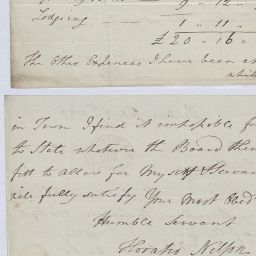 9 " 12 "
Lodgeing 1 " 11 "
£20 " 16 "
The Other Expences I have been at
in Town I find it impossible f
to State whatever the Board then
fitt to allow for Myself & Servan
will fully satisfy Your Most Obed
Humble Servant
Horatio Nelson